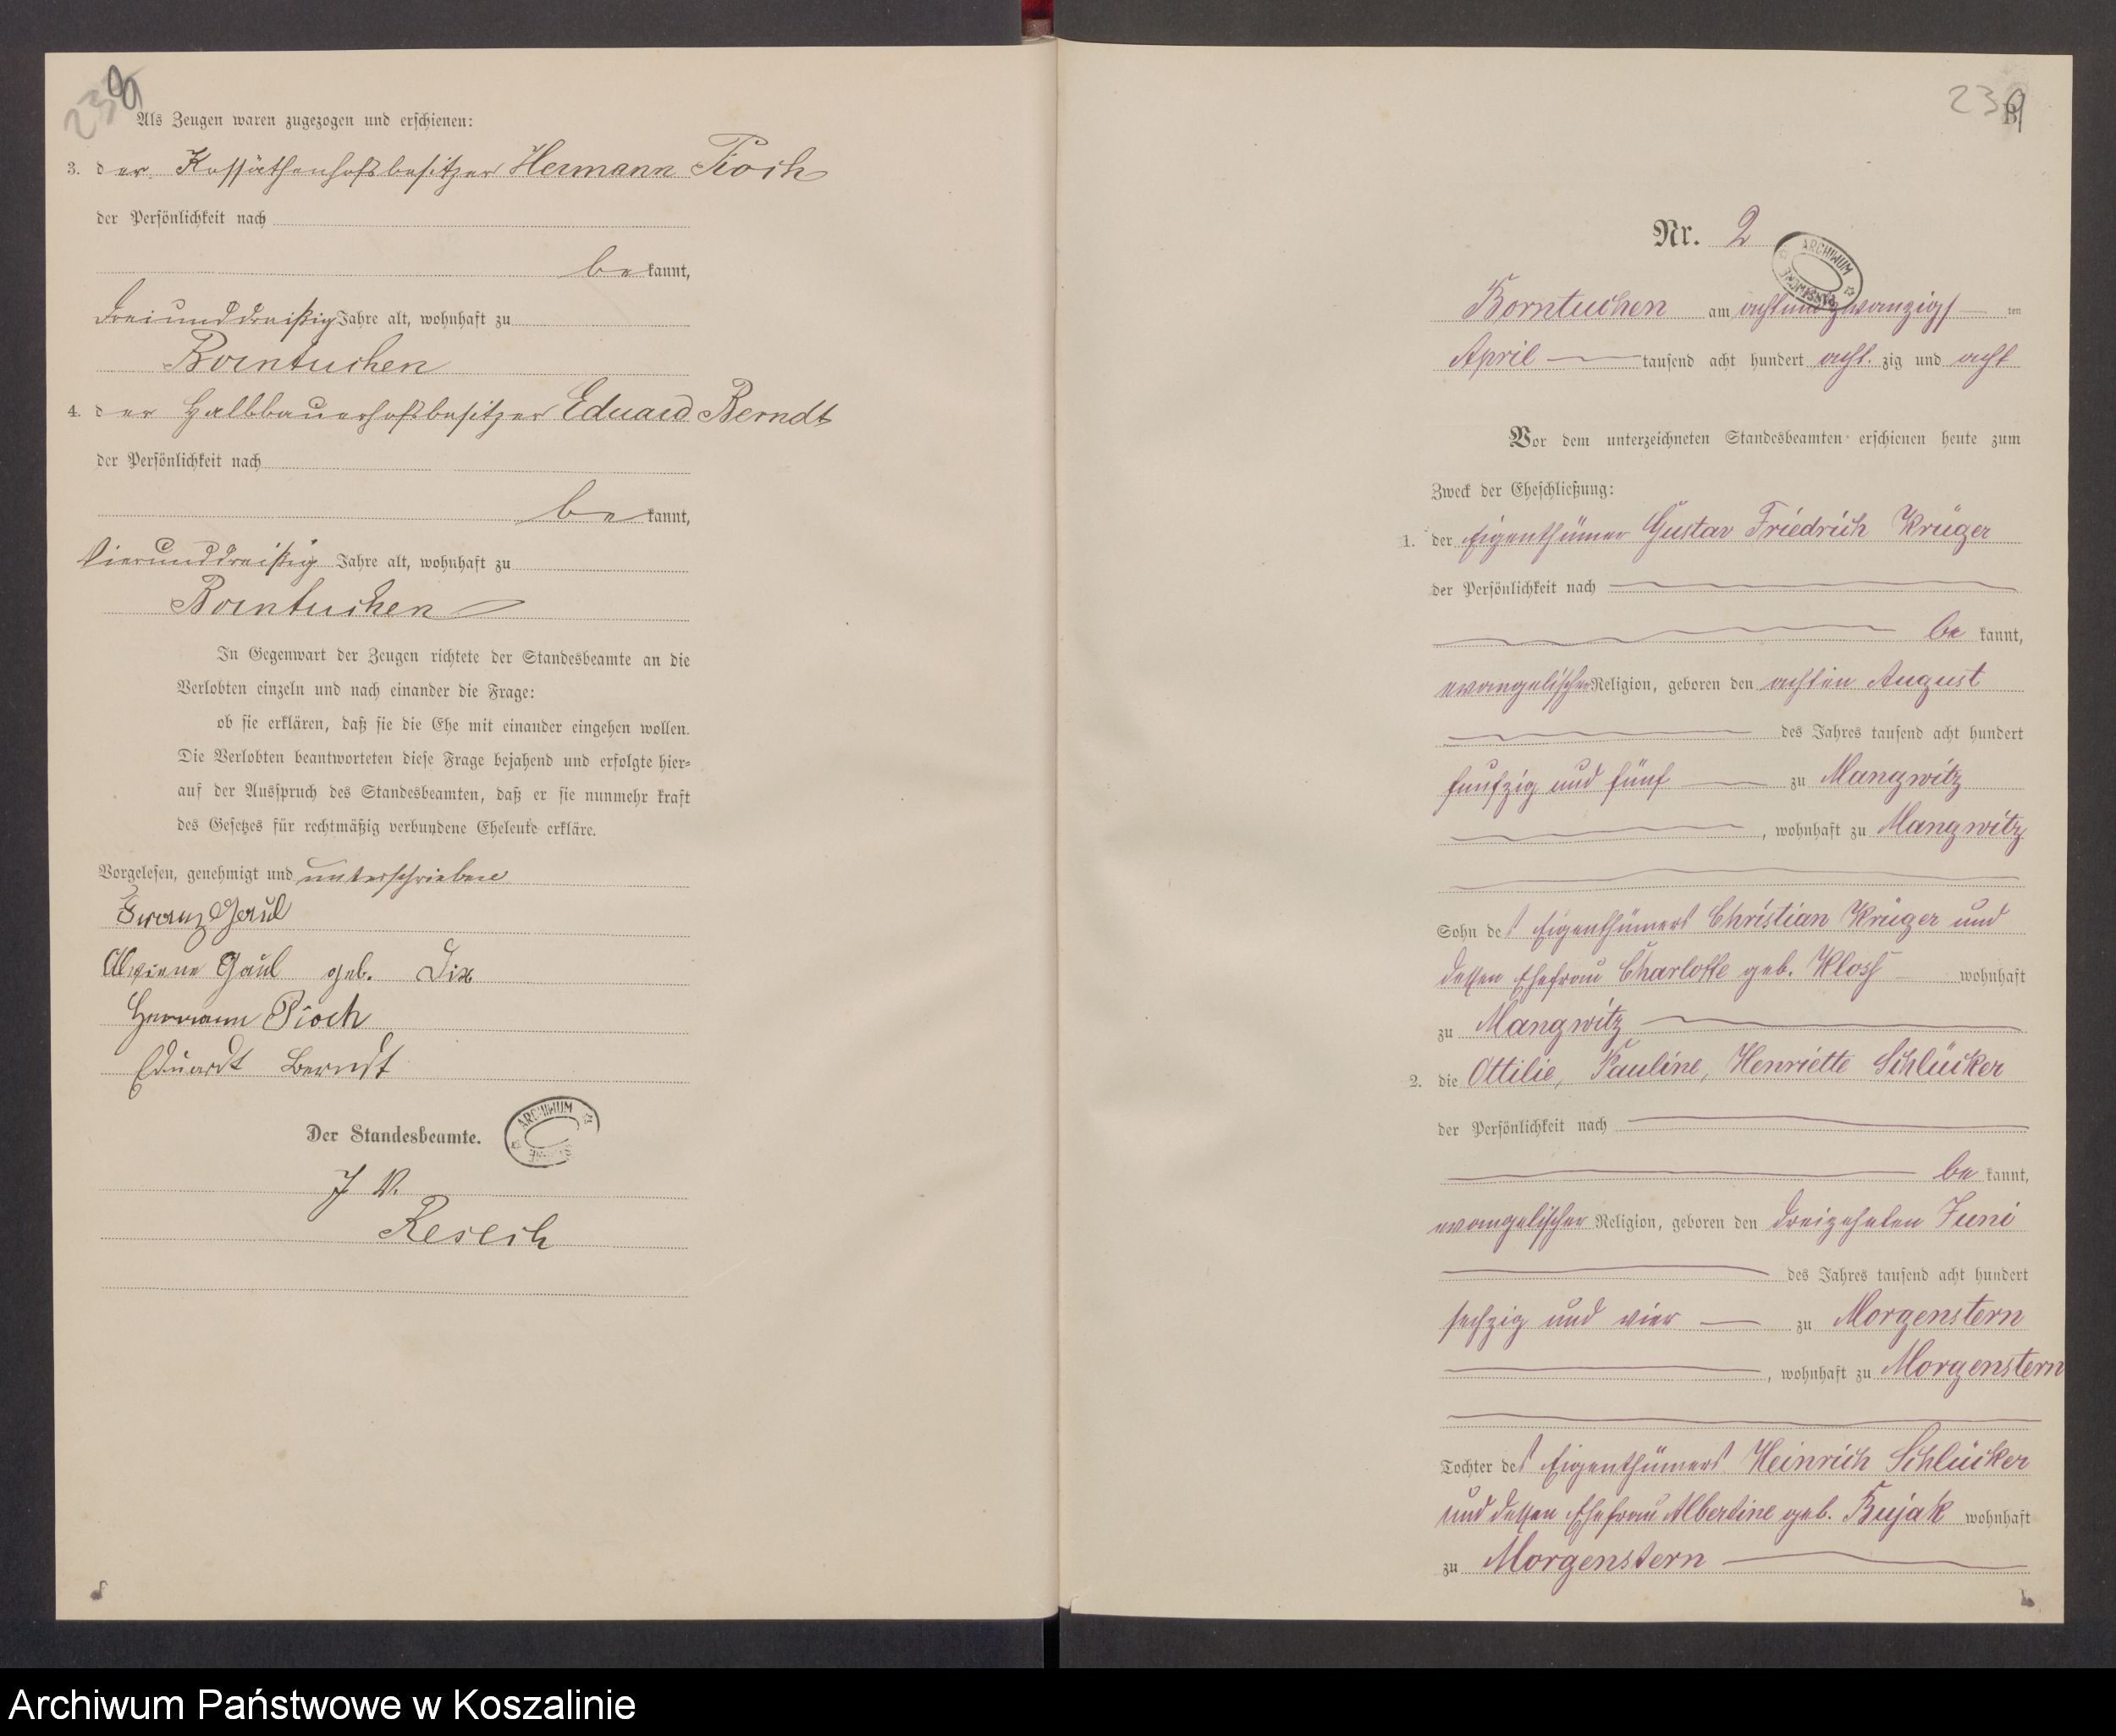 239
Als Zeugen waren zugezogen und erschienen:
3. der Kossäthenhofsbesitzer Hermann Pioch
der Persönlichkeit nach
bekannt,
dreiunddreißig Jahre alt, wohnhaft zu
Borntuchen
4. der Halbbauerhofsbesitzer Eduard Berndt
der Persönlichkeit nach
bekannt,
vierunddreißig Jahre alt, wohnhaft zu
Borntuchen
In Gegenwart der Zeugen richtete der Standesbeamte an die
Verlobten einzeln und nach einander die Frage:
ob sie erklären, daß sie die Ehe mit einander eingehen wollen.
Die Verlobten beantworteten diese Frage bejahend und erfolgte hier-
auf der Ausspruch des Standesbeamten, daß er sie nunmehr kraft
des Gesetzes für rechtmäßig verbundene Eheleute erkläre.
Vorgelesen, genehmigt und unterschrieben
Franz Gaul
Alwiene Gaul geb. Dix
Hermann Pioch
Eduardt Berndt
Der Standesbeamte.
ARCHIWUM
J. V.
239
B.
Nr. 2
ARCHIWUM PAŃSTWOWE
Borntuchen am achtundzwanzigsten
April tausend acht hundert achtzig und acht
Vor dem unterzeichneten Standesbeamten erschienen heute zum
Zweck der Eheschließung:
1. der Eigenthümer Gustav Friedrich Krüger
der Persönlichkeit nach
bekannt,
evangelischer Religion, geboren den achten August
des Jahres tausend acht hundert
fünfzig und fünf zu Mangwitz
, wohnhaft zu Mangwitz
Sohn des Eigenthümers Christian Krüger und
dessen Ehefrau Charlotte geb. Kloß wohnhaft
zu Mangwitz
2. die Ottilie, Pauline, Henriette Schlücker
der Persönlichkeit nach
bekannt,
evangelischer Religion, geboren den dreizehnten Juni
des Jahres tausend acht hundert
sechzig und vier zu Morgenstern
, wohnhaft zu Morgenstern
Tochter des Eigenthümers Heinrich Schlücker
und dessen Ehefrau Albertine geb. Bujak wohnhaft
zu Morgenstern
Archiwum Państwowe w Koszalinie